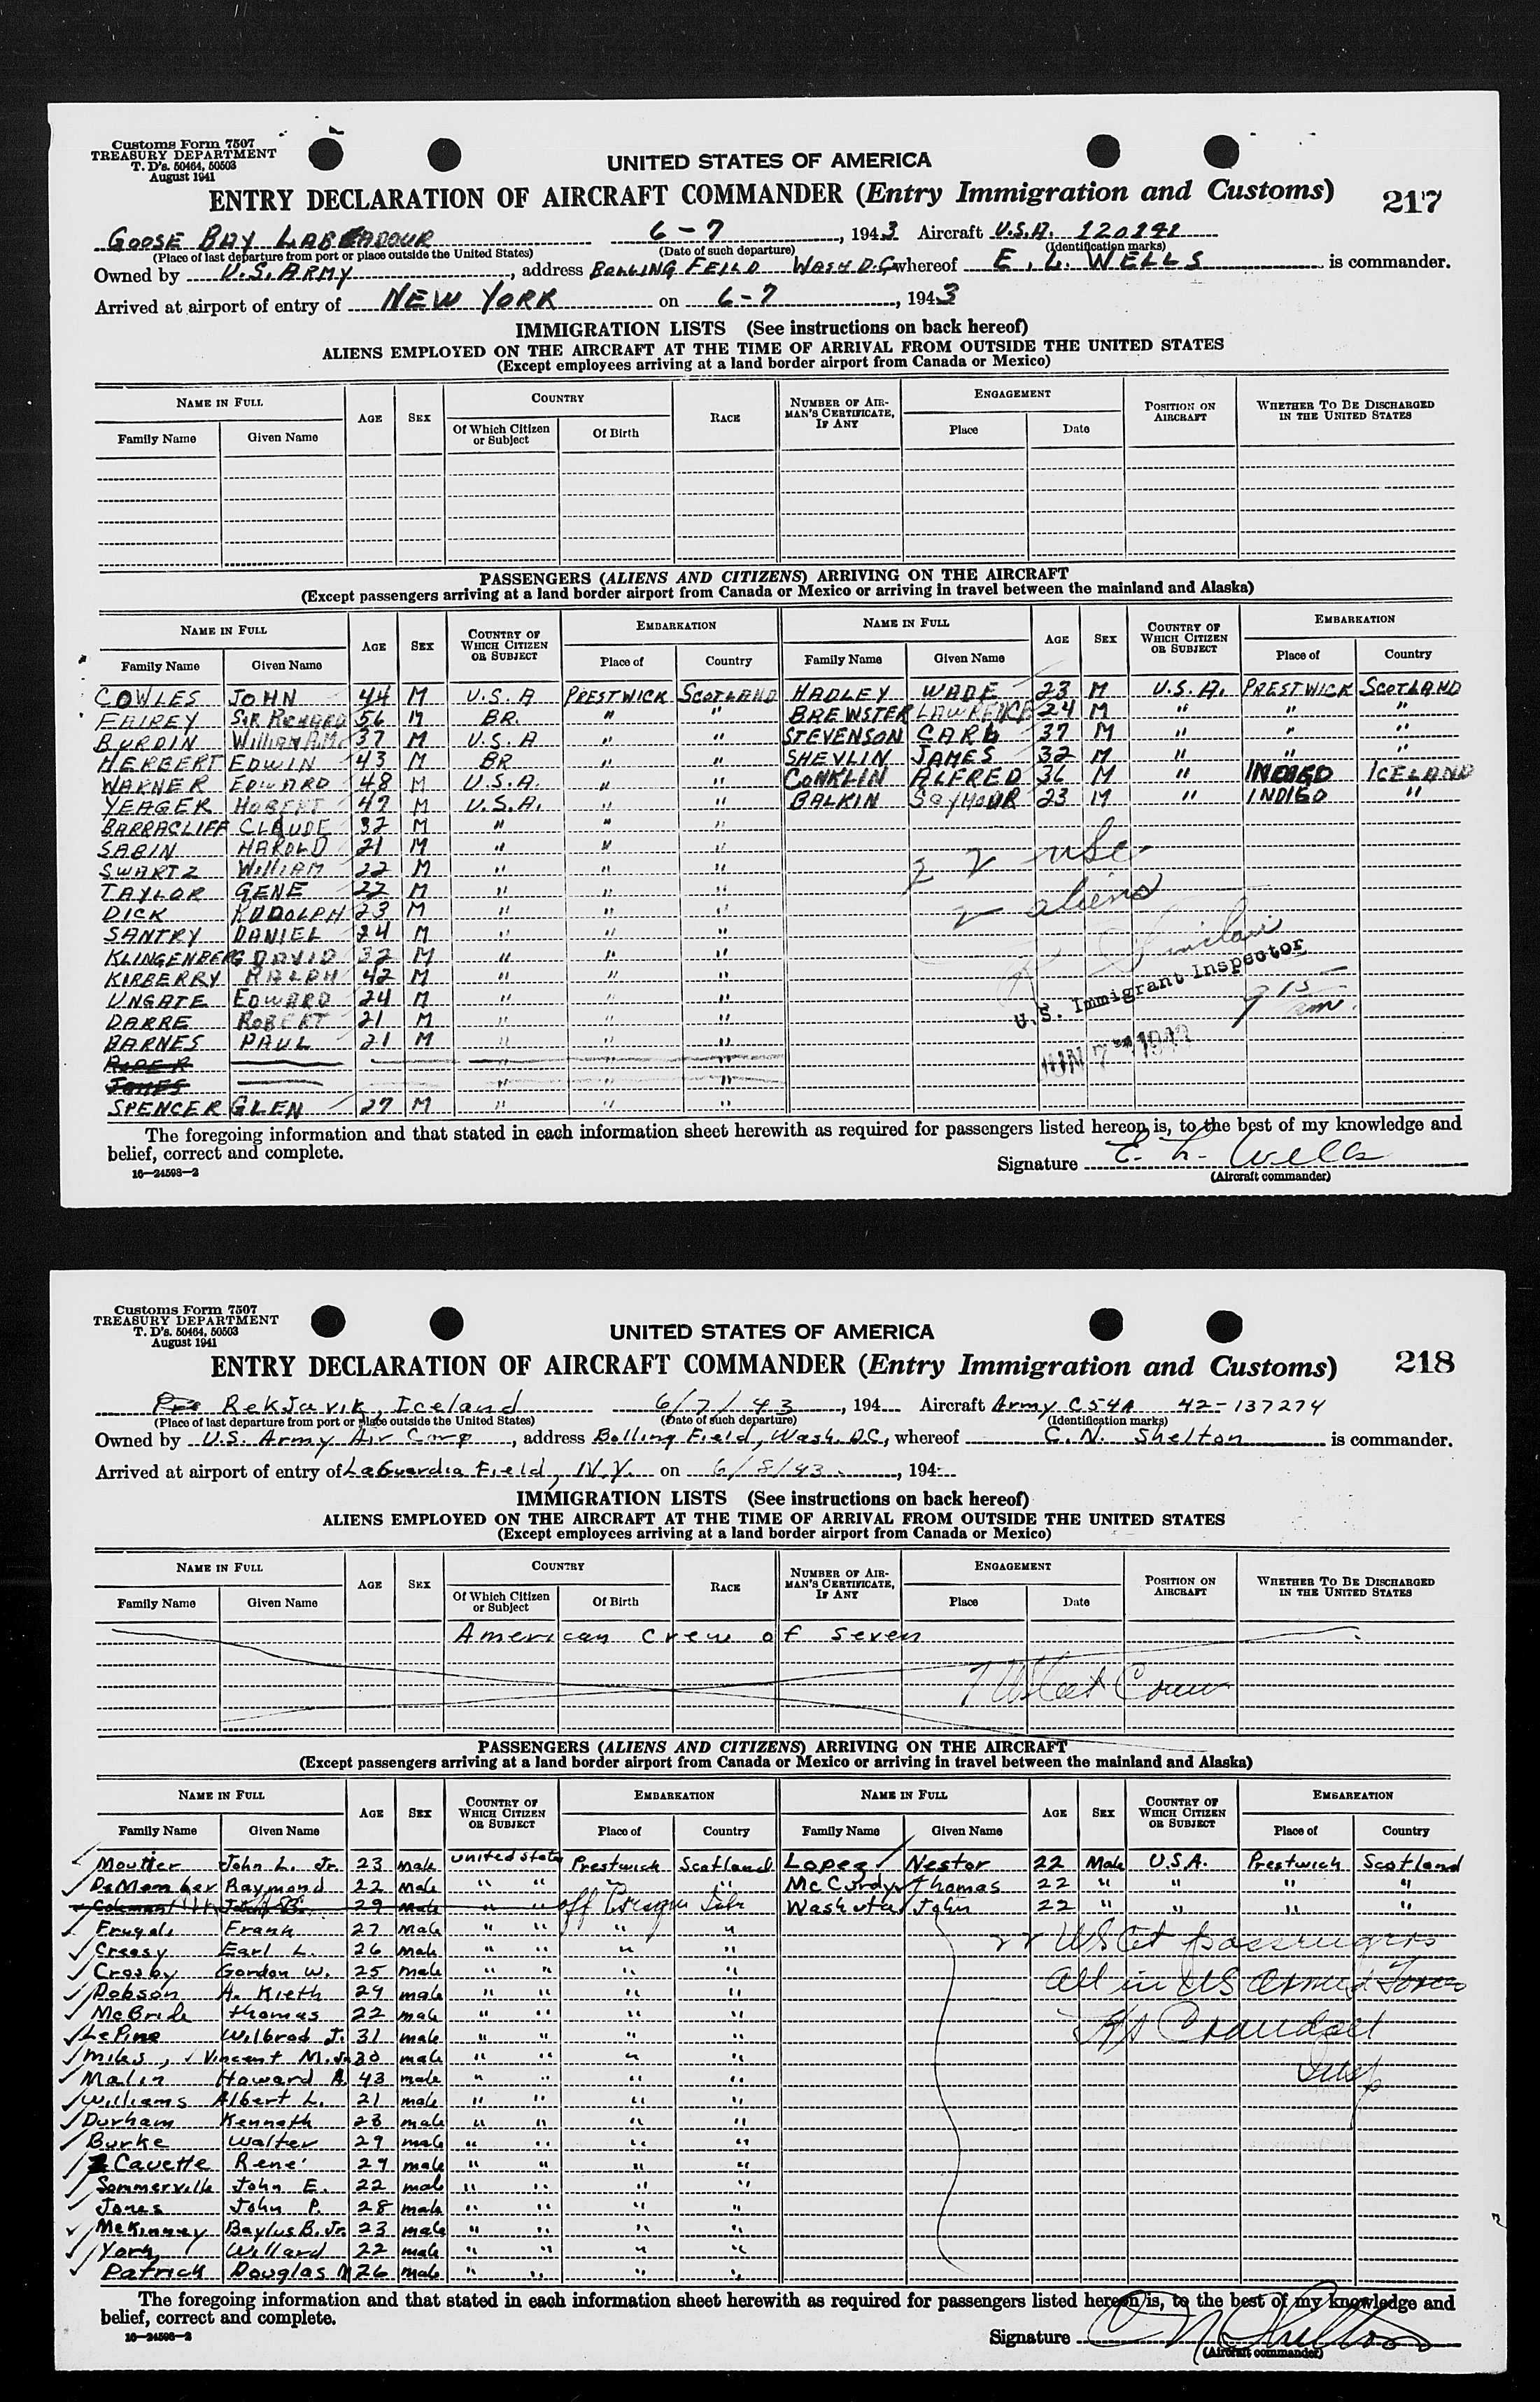 Customs Form 7507
TREASURY DEPARTMENT
T. D's. 50464, 50503
August 1941
UNITED STATES OF AMERICA
ENTRY DECLARATION OF AIRCRAFT COMMANDER (Entry Immigration and Customs) 217
GOOSE BAY LABRADOUR 6-7, 1943 Aircraft U.S.A.
(Place of last departure from port or place outside the United States) (Date of such departure) (Identification marks)
Owned by U.S. ARMY, address BOLLING FEILD WASH D.C. whereof E. L. WELLS is commander.
Arrived at airport of entry of NEW YORK on 6-7, 1943
IMMIGRATION LISTS (See instructions on back hereof)
ALIENS EMPLOYED ON THE AIRCRAFT AT THE TIME OF ARRIVAL FROM OUTSIDE THE UNITED STATES
(Except employees arriving at a land border airport from Canada or Mexico)
NAME IN FULL AGE SEX COUNTRY RACE NUMBER OF AIRMAN'S CERTIFICATE, IF ANY ENGAGEMENT POSITION ON AIRCRAFT WHETHER TO BE DISCHARGED IN THE UNITED STATES
Family Name Given Name Of Which Citizen or Subject Of Birth Place Date
PASSENGERS (ALIENS AND CITIZENS) ARRIVING ON THE AIRCRAFT
(Except passengers arriving at a land border airport from Canada or Mexico or arriving in travel between the mainland and Alaska)
NAME IN FULL AGE SEX COUNTRY OF WHICH CITIZEN OR SUBJECT EMBARKATION NAME IN FULL AGE SEX COUNTRY OF WHICH CITIZEN OR SUBJECT EMBARKATION
Family Name Given Name Place of Country Family Name Given Name Place of Country
COWLES JOHN 44 M U.S.A PRESTWICK SCOTLAND HADLEY WADE 23 M U.S.A. PRESTWICK SCOTLAND
FAIREY SIR RICHARD 56 M BR. " " BREWSTER LAWRENCE 24 M " " "
BURDIN WILLIAM A.M. 37 M U.S.A " " STEVENSON CARL 37 M " " "
HERBERT EDWIN 43 M BR " " SHEVLIN JAMES 32 M " " "
WARNER EDWARD 48 M U.S.A. " " CONKLIN ALFRED 36 M " INDIGO ICELAND
YEAGER HOBERT 42 M U.S.A. " " BALKIN SEYMOUR 23 M " INDIGO "
BARRACLIFF CLAUDE 32 M " " "
SABIN HAROLD 21 M " " "
SWARTZ WILLIAM 22 M " " "
TAYLOR GENE 22 M " " "
DICK RUDOLPH 23 M " " "
SANTRY DANIEL 24 M " " "
KLINGENBERG DAVID 32 M " " "
KIRBERRY RALPH 42 M " " "
UNGATE EDWARD 24 M " " "
DARRE ROBERT 21 M " " "
BARNES PAUL 21 M " " "
" " "
JONES " " "
SPENCER GLEN 27 M " " "
22 USC
2 aliens
Sinclair
U.S. Immigrant Inspector
9 15 am.
JUN 7 1943
The foregoing information and that stated in each information sheet herewith as required for passengers listed hereon is, to the best of my knowledge and
belief, correct and complete.
Signature E. L. Wells
16—24598-2 (Aircraft commander)
Customs Form 7507
TREASURY DEPARTMENT
T. D's. 50464, 50503
August 1941
UNITED STATES OF AMERICA
ENTRY DECLARATION OF AIRCRAFT COMMANDER (Entry Immigration and Customs) 218
RekJavik, Iceland 6/7/43, 194 Aircraft Army C54A 42-137274
(Place of last departure from port or place outside the United States) (Date of such departure) (Identification marks)
Owned by U.S. Army Air Corp, address Bolling Field, Wash. D.C., whereof C. N. Shelton is commander.
Arrived at airport of entry of LaGuardia Field, N.Y. on 6/8/43, 194
IMMIGRATION LISTS (See instructions on back hereof)
ALIENS EMPLOYED ON THE AIRCRAFT AT THE TIME OF ARRIVAL FROM OUTSIDE THE UNITED STATES
(Except employees arriving at a land border airport from Canada or Mexico)
NAME IN FULL AGE SEX COUNTRY RACE NUMBER OF AIRMAN'S CERTIFICATE, IF ANY ENGAGEMENT POSITION ON AIRCRAFT WHETHER TO BE DISCHARGED IN THE UNITED STATES
Family Name Given Name Of Which Citizen or Subject Of Birth Place Date
American crew of seven
7 US Cit Crew
PASSENGERS (ALIENS AND CITIZENS) ARRIVING ON THE AIRCRAFT
(Except passengers arriving at a land border airport from Canada or Mexico or arriving in travel between the mainland and Alaska)
NAME IN FULL AGE SEX COUNTRY OF WHICH CITIZEN OR SUBJECT EMBARKATION NAME IN FULL AGE SEX COUNTRY OF WHICH CITIZEN OR SUBJECT EMBARKATION
Family Name Given Name Place of Country Family Name Given Name Place of Country
Moutier John L. Jr. 23 male United States Prestwick Scotland Lopez Nestor 22 Male U.S.A. Prestwick Scotland
DeMember Raymond 22 male " " " " McCurdy Thomas 22 " " " "
Coleman 29 male " " off Washuta John 22 " " " "
Frugoli Frank 27 male " " " "
Creasy Earl L. 26 male " " " "
Crosby Gordon W. 25 male " " " "
Dobson A. Kieth 29 male " " " "
McBride thomas 22 male " " " "
LePine Wilbrod J. 31 male " " " "
Miles, Vincent M. Jr. 30 male " " " "
Malin Howard A. 43 male " " " "
Williams Albert L. 21 male " " " "
Durham Kenneth 23 male " " " "
Burke Walter 29 male " " " "
Cavette Rene' 29 male " " " "
Sommerville John E. 22 male " " " "
Jones John P. 28 male " " " "
McKinney Baylus B. Jr. 23 male " " " "
York Willard 22 male " " " "
Patrick Douglas M 26 male " " " "
22 US Cit passengers
All in US Armed Forces
Crandall
Insp
The foregoing information and that stated in each information sheet herewith as required for passengers listed hereon is, to the best of my knowledge and
belief, correct and complete.
Signature C N Shelton
16—24598-2 (Aircraft commander)